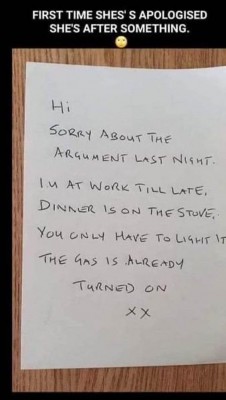 FIRST TIME SHES' S APOLOGISED
SHE'S AFTER SOMETHING.
Hi
SORRY ABOUT THE
ARGUMENT LAST NIGHT.
I.M AT WORK TILL LATE,
DINNER IS ON THE STOVE,
YOU ONLY HAVE TO LIGHT IT
THE GAS IS ALREADY
TURNED ON
XX